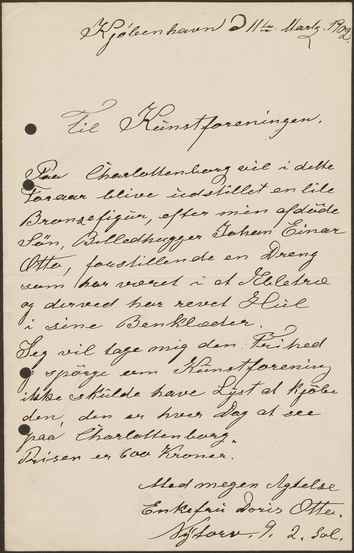 Kjöbenhavn d 11te Martz. 1902.
Til Kunstforeningen.
Paa Charlottenborg vil i dette
Foraar blive udstillet en lille
Bronzefigur, efter min afdöde
Sön, Billedhugger Johan Einar
Otto, forestillende en Dreng
som har været i et Æbletræ
og derved har revet Hul
i sine Benklæder.
Jeg vil tage mig den Frihed
og spörge om Kunstforening
ikke skulde have Lyst at kjöbe
den, den er hver Dag at see
paa Charlottenborg.
Prisen er 600 Kroner.
Med megen Agtelse
Enkefru Doris Otto.
Nytorv. 9. 2. Sal.